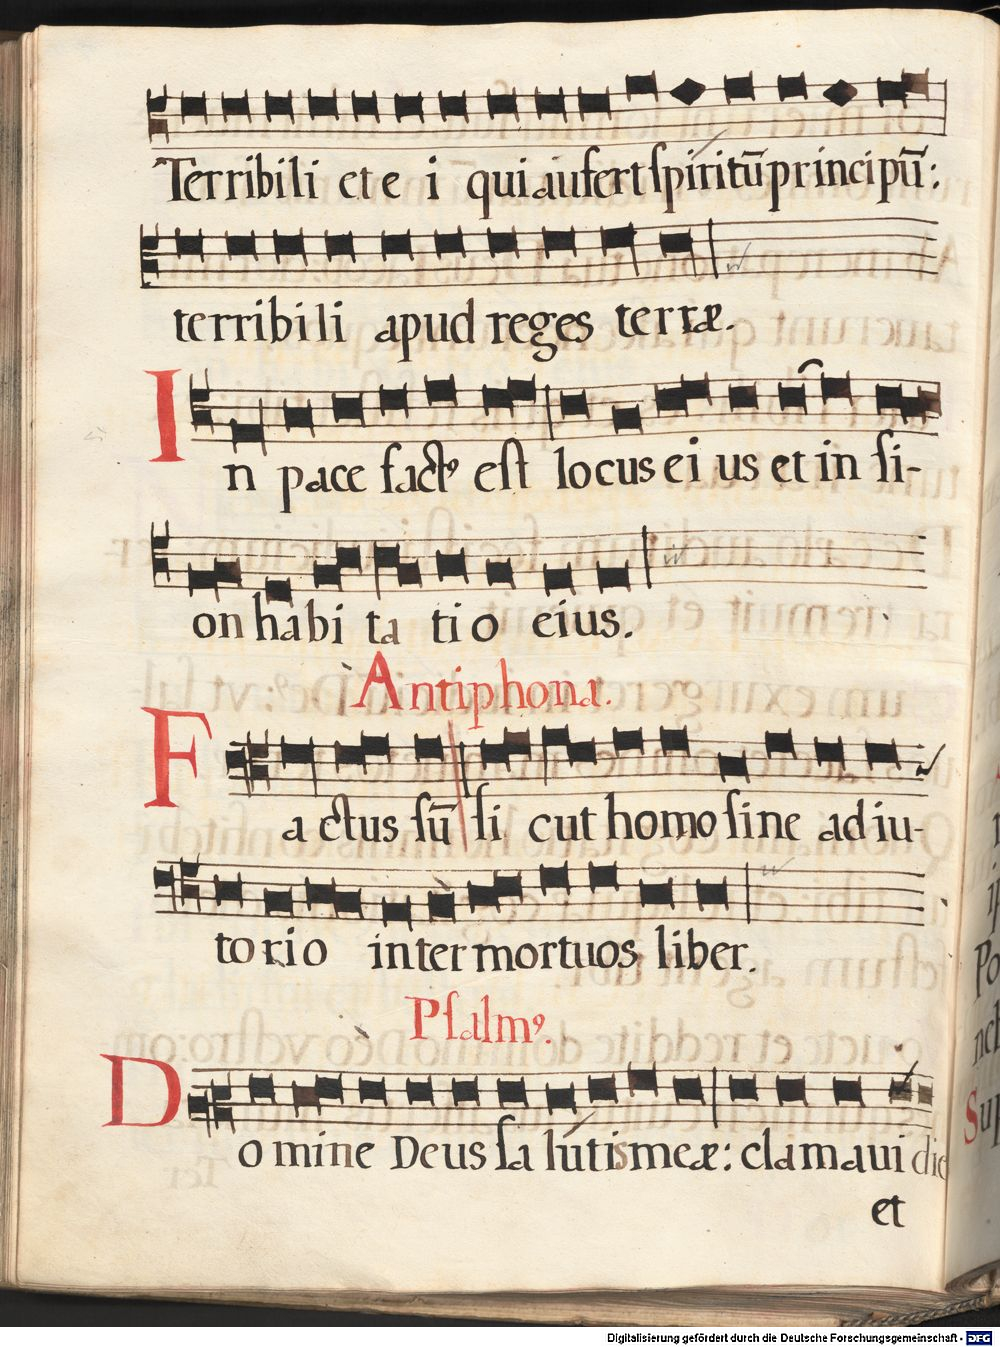 Terribili et e i qui aufert spíritū principū:
terribili apud reges terræ.
In pace factꝰ est locus ei us et in si-
on habi ta tio eius.
Antiphona.
Factus sū si cut homo sine adiu-
torio inter mortuos liber.
Psalmꝰ.
Domine Deus sa lútis meæ: clamaui die
et
Digitalisierung gefördert durch die Deutsche Forschungsgemeinschaft - DFG